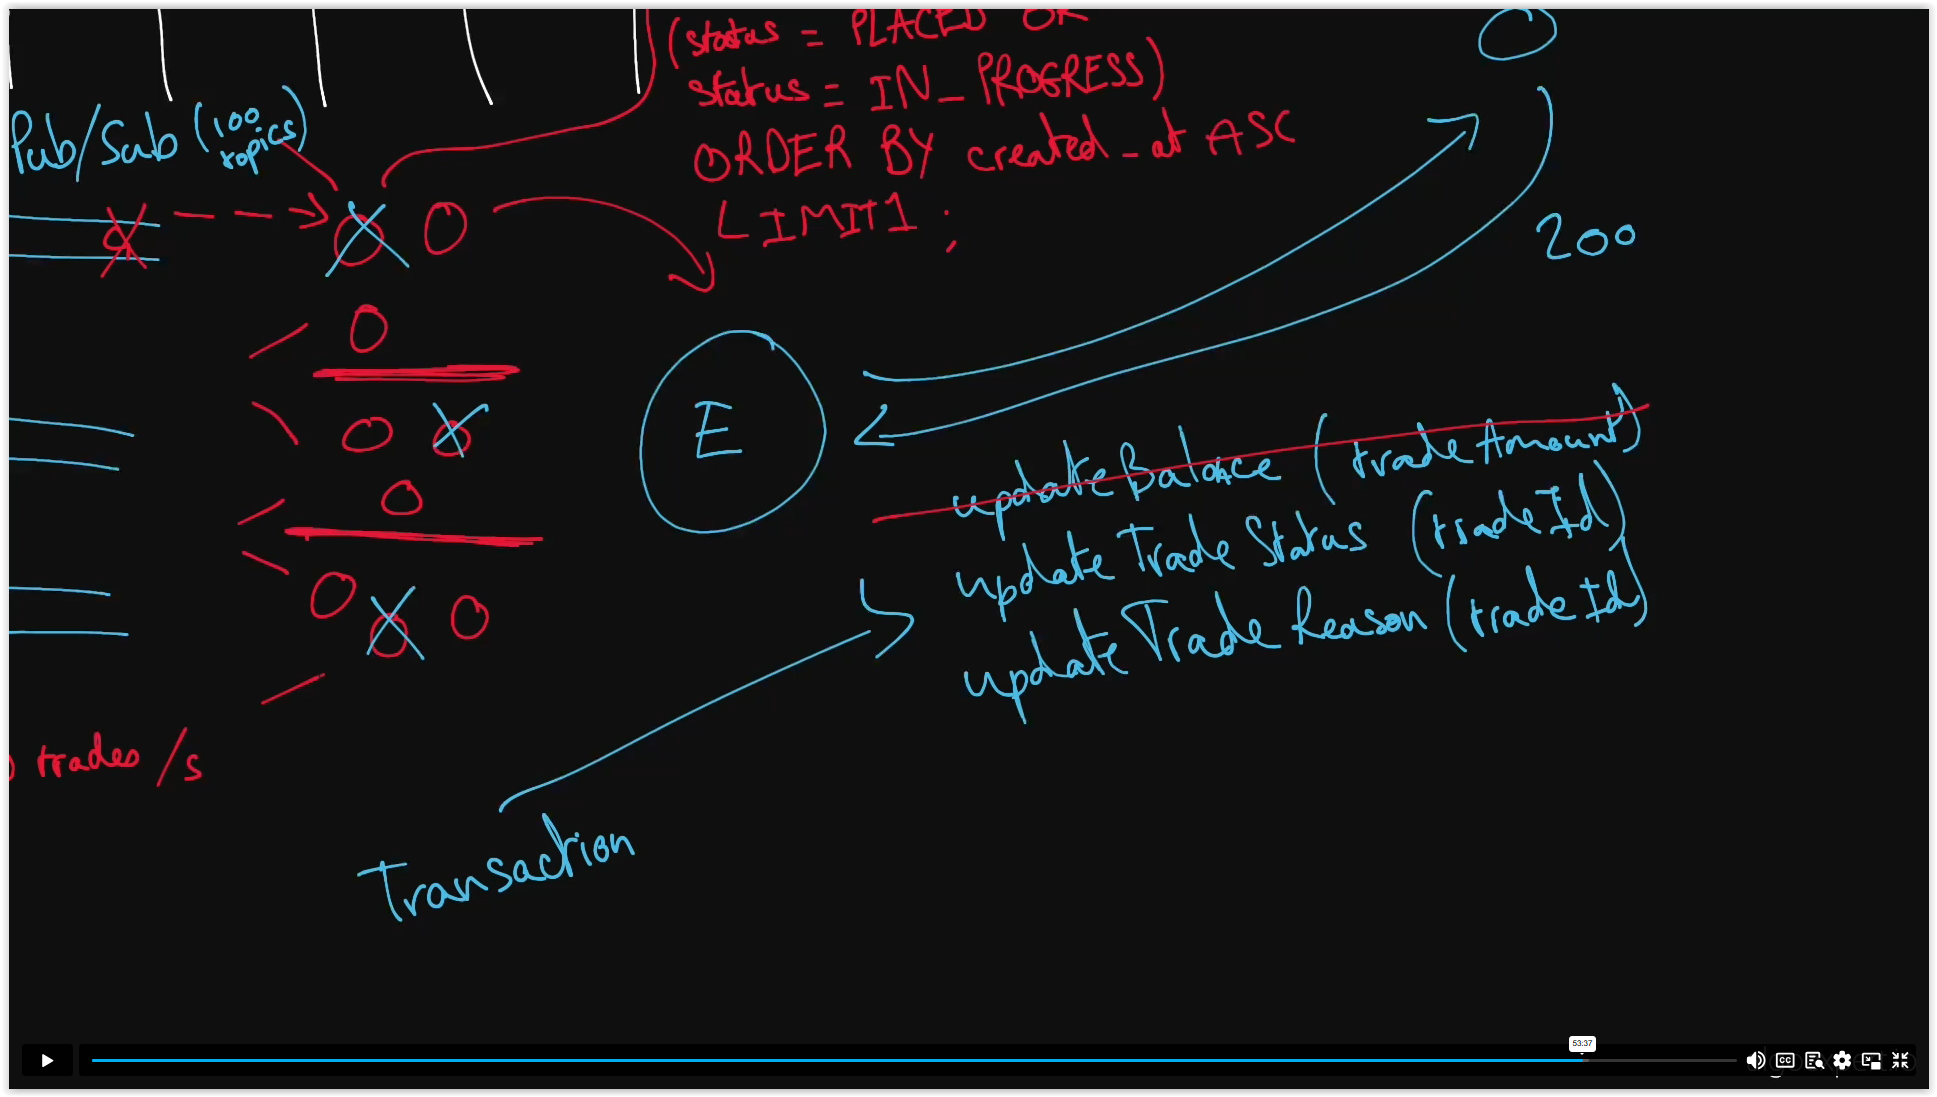 (status = PLACED OR
status = IN_PROGRESS)
ORDER BY created_at ASC
LIMIT 1;
Pub/Sub (100
topics)
200
E
updateBalance (tradeAmount)
updateTradeStatus (tradeId)
updateTradeReason (tradeId)
trades/s
Transaction
53:37
CC